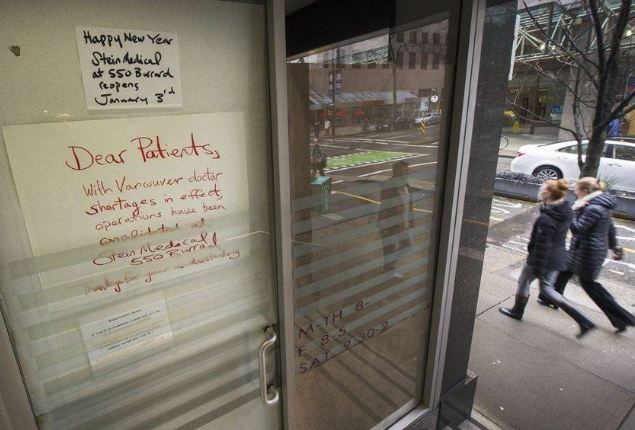 Happy New Year
Stein Medical
at 550 Burrard
reopens
January 3rd
Dear Patients,
With Vancouver doctor
shortages in effect,
operations have been
consolidated at
Stein Medical
550 Burrard
for your understanding
M-TH 8-
F 8-5
SAT 9:30-2